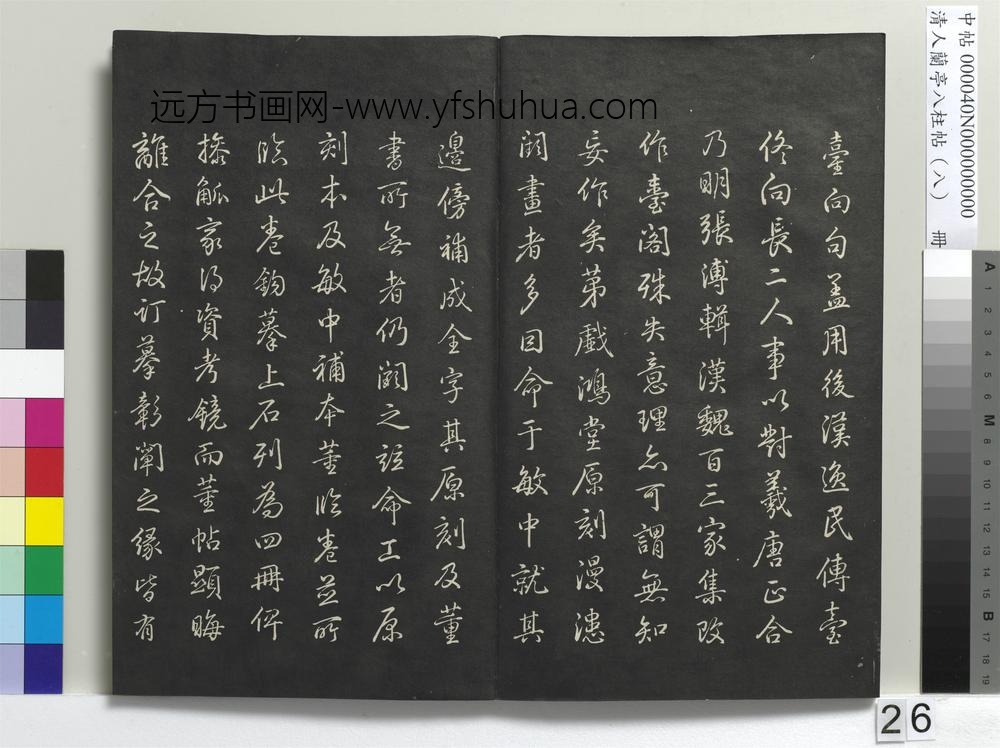 臺向句盖用後漢逸民傳臺
佟向長二人事以對羲唐正合
乃明張溥輯漢魏百三家集改
作臺閣殊失意理亦可謂無知
妄作矣第戲鴻堂原刻漫漶
闕畫者多因命于敏中就其
邊傍補成全字其原刻及董
書所無者仍闕之並命工以原
刻本及敏中補本董臨卷並所
臨此卷鉤摹上石列為四冊俾
操觚家得資考鏡而董帖顯晦
離合之故訂摹彰闡之緣皆有
远方书画网-www.yfshuhua.com
中帖 000040N000000000
清人蘭亭八柱帖（八） 冊
26
A 1 2 3 4 5 6 M 8 9 10 11 12 13 14 15 B 17 18 19